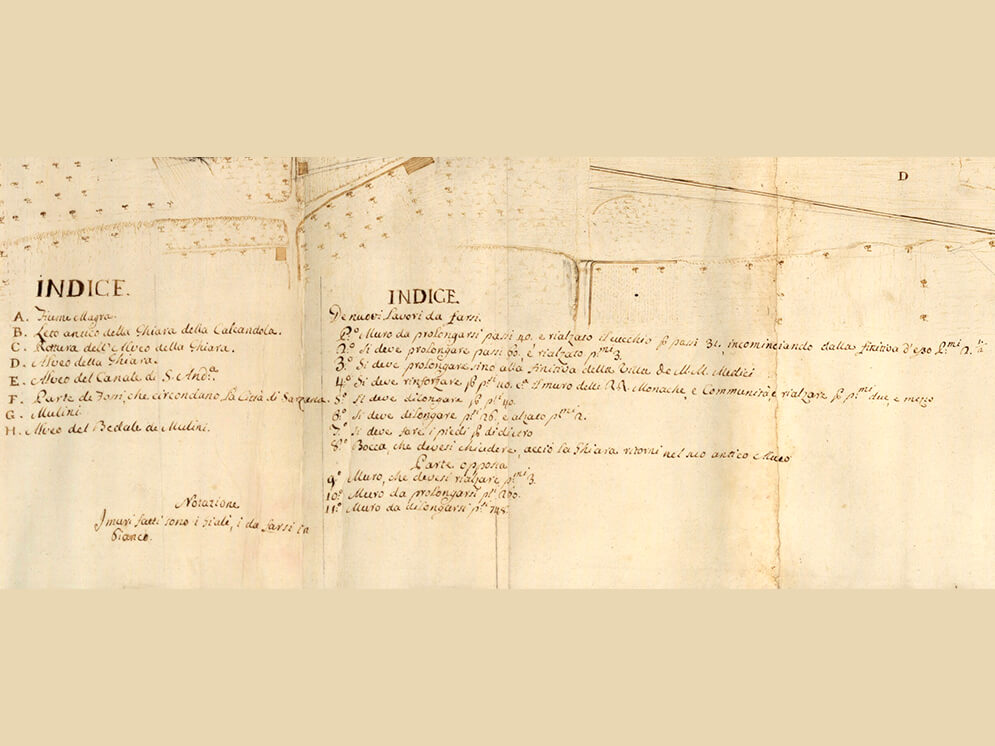 D
INDICE.
A. Fiume Magra.
B. Leto antico della Ghiara della Calcandola.
C. Rottura dell'Alveo della Ghiara.
D. Alveo della Ghiara.
E. Alveo del Canale di S. And.ª
F. Parte de Fossi, che circondano la Città di Sarzana.
G. Mulini.
H. Alveo del Bedale de Mulini.
Notazione
I muri fatti sono i gialli, i da farsi in
bianco.
INDICE.
De nuovi Lavori da farsi.
P.º Muro da prolongarsi passi 40, e rialzato il vecchio passi 34, incominciando dalla finitiva d'esso
2.º Si deve prolongare passi 60, e rialzato p.mi 3.
3.º Si deve prolongare sino alla finitiva della Villa De M. M. Medici
4.º Si deve rinforzare 40. il muro delle RR Monache, e Communità, e rialzare p.mi due, e mezo
5.º Si deve dilongare 40.
6.º Si deve dilongare 26. e alzato p.mi 2.
7.º Si deve fare i piedi di dietro
8.º Bocca, che devesi chiudere, acciò la Ghiara ritorni nel suo antico Alveo
Parte opposta
9.º Muro, che devesi rialzare p.mi 3.
10.º Muro da prolongarsi 260.
11.º Muro da dilongarsi 148.